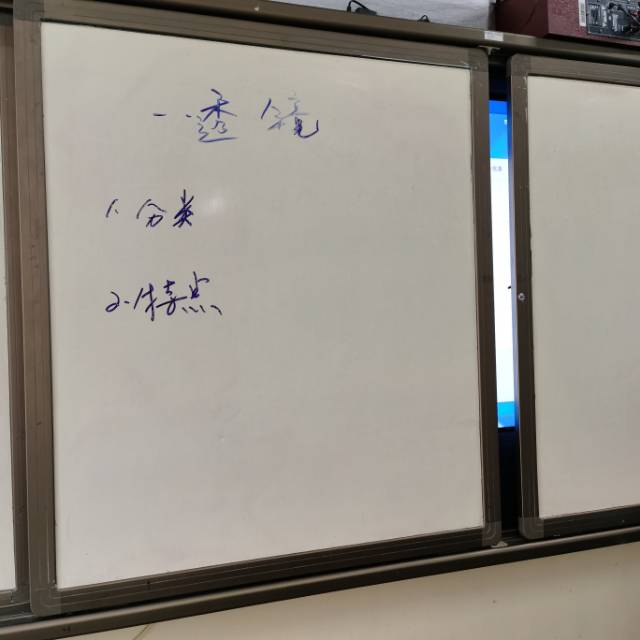 一.透镜
1.分类
2.特点